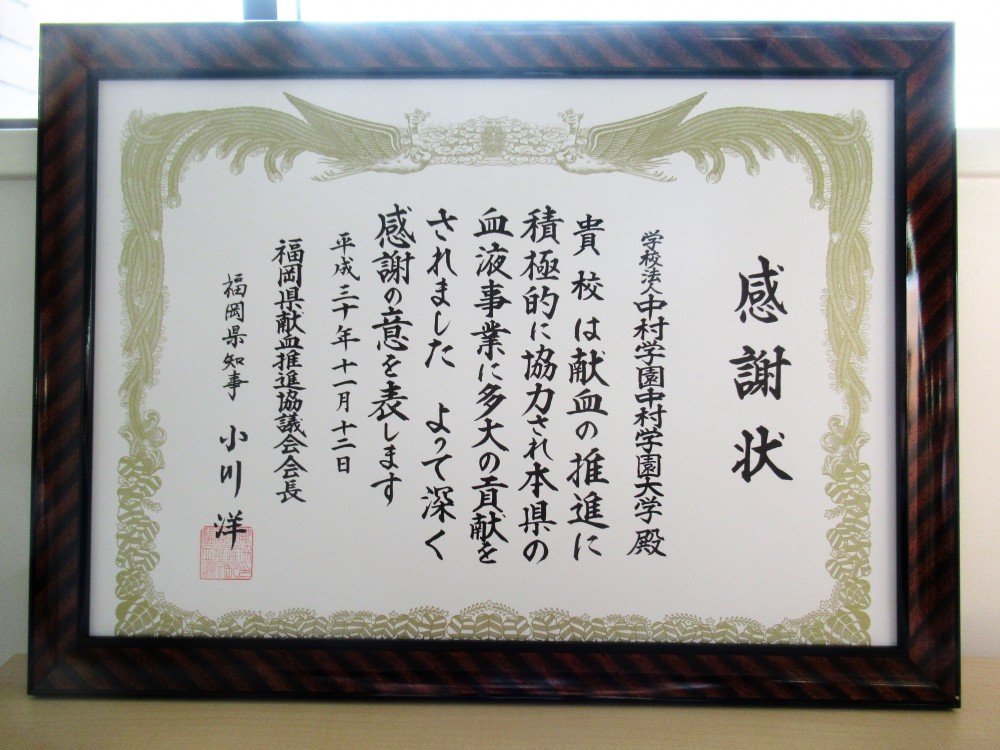 感謝状
学校法人中村学園中村学園大学殿
貴校は献血の推進に
積極的に協力され本県の
血液事業に多大の貢献を
されました　よって深く
感謝の意を表します
平成三十年十一月十二日
福岡県献血推進協議会会長
福岡県知事　小川洋